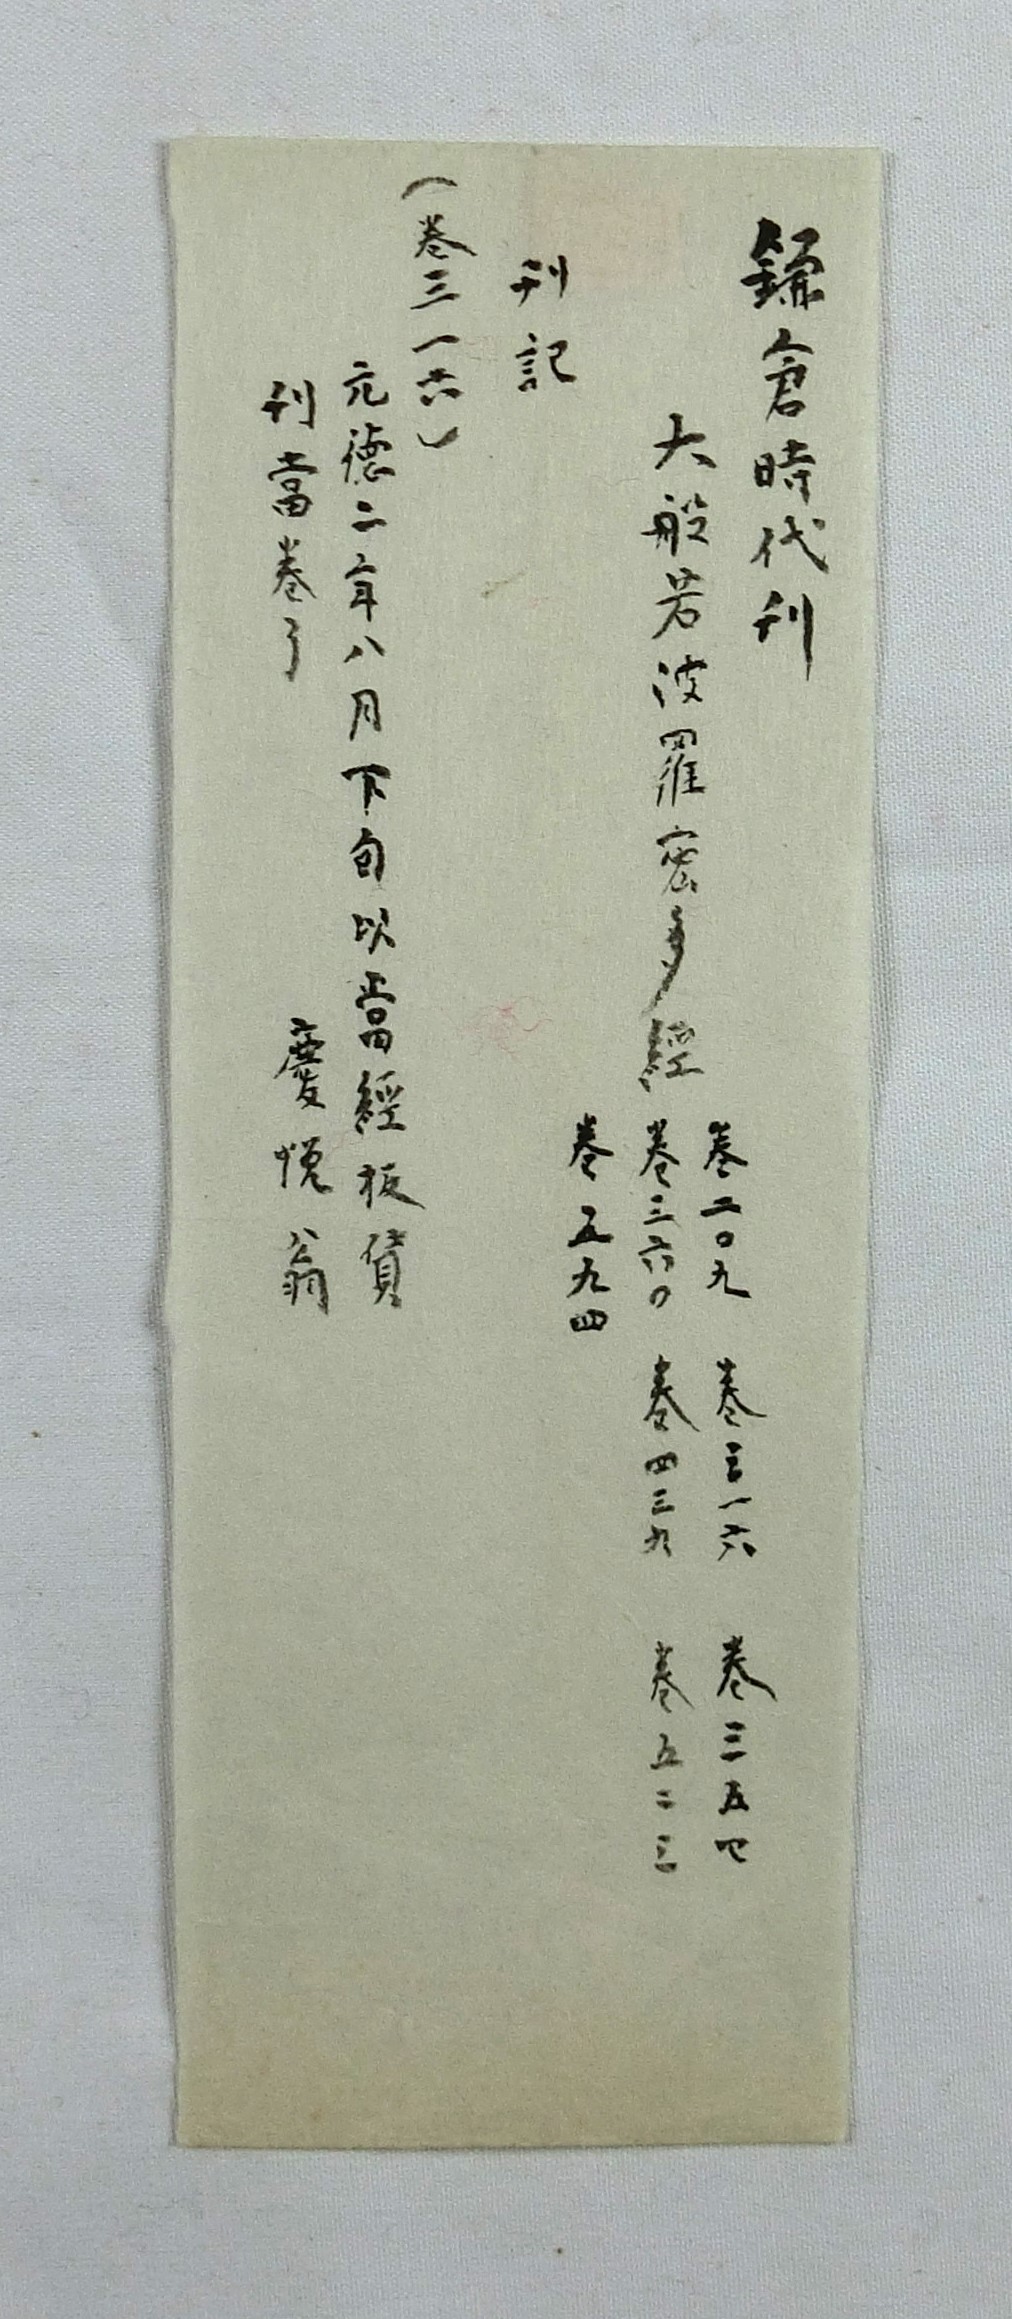 鎌倉時代刊
大般若波羅密多經
巻二〇九 巻三一六 巻三五四
巻三六〇 巻四三九 巻五二三
巻五九四
刊記
(巻三一六)
元德二年八月下旬以當經板賃
刊當巻了 慶悦翁